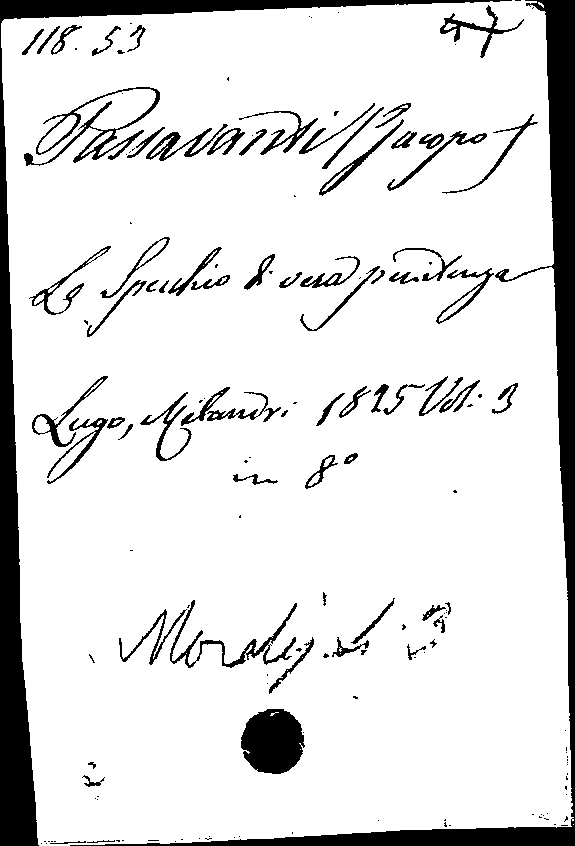 118. 53
47
Passavanti Jacopo
Lo Specchio di vera penitenza
Lugo, Melandri 1825 Vol: 3
in 8°